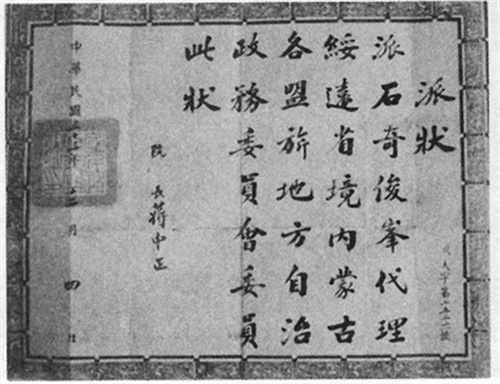 派狀
派石奇俊峯代理
綏遠省境內蒙古
各盟旂地方自治
政務委員會委員
此狀
院長蔣中正
中華民國
年
月四日